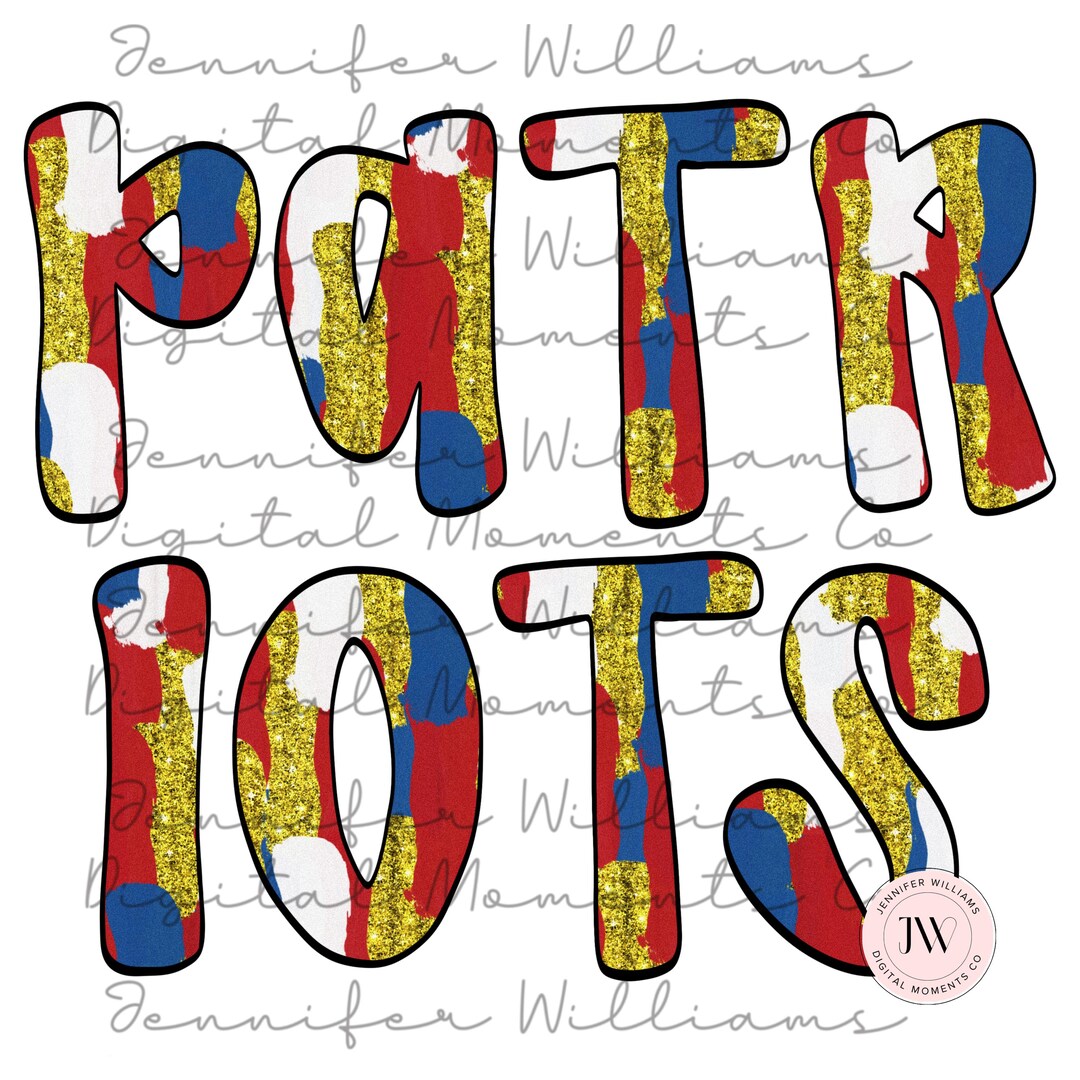 Jennifer Williams
Digital Moments Co
PaTR
Jennifer Williams
Digital Moments Co
Jennifer Williams
Digital Moments Co
IOTS
Jennifer Williams
Digital Moments Co
Jennifer Williams
Digital Moments Co
JENNIFER WILLIAMS
JW
DIGITAL MOMENTS CO
Jennifer Williams